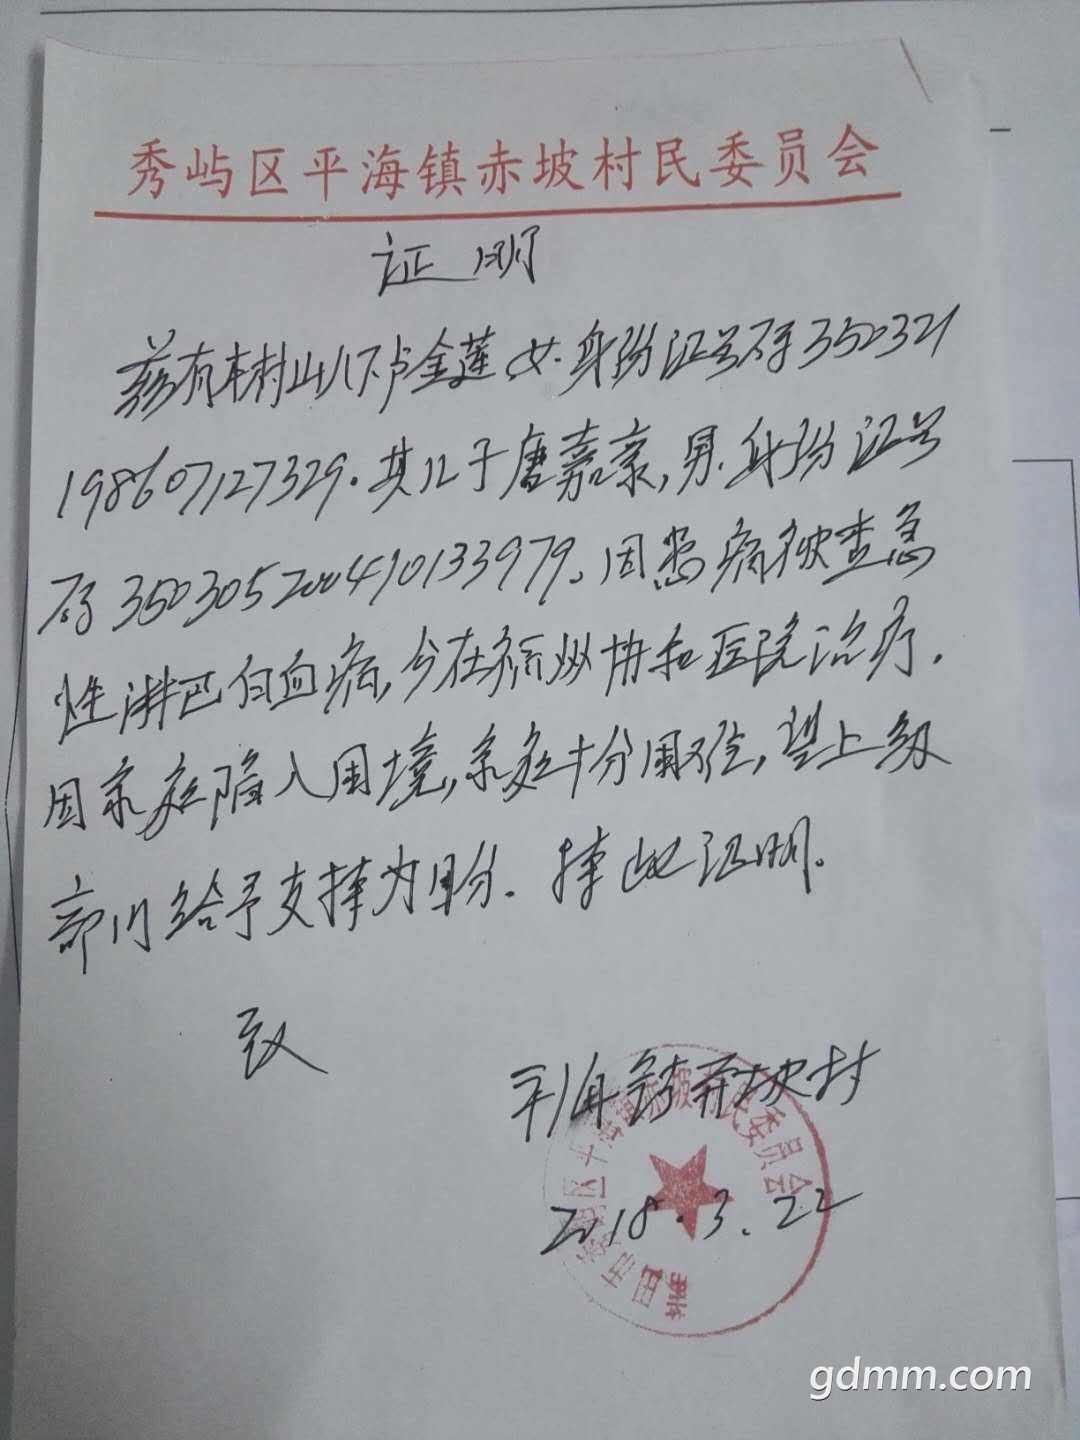 秀屿区平海镇赤坡村民委员会
证明
兹有本村山下卢金莲,女.身份证号码350321
198607127329.其儿子唐嘉豪,男.身份证号
码350305200410133979.因患病被查急
性淋巴白血病,今在福州协和医院治疗.
因家庭陷入困境,家庭十分困难,望上级
部门给予支持为盼.特此证明.
致
平海镇赤坡村
2018.3.22
莆田市秀屿区平海镇赤坡村民委员会
gdmm.com